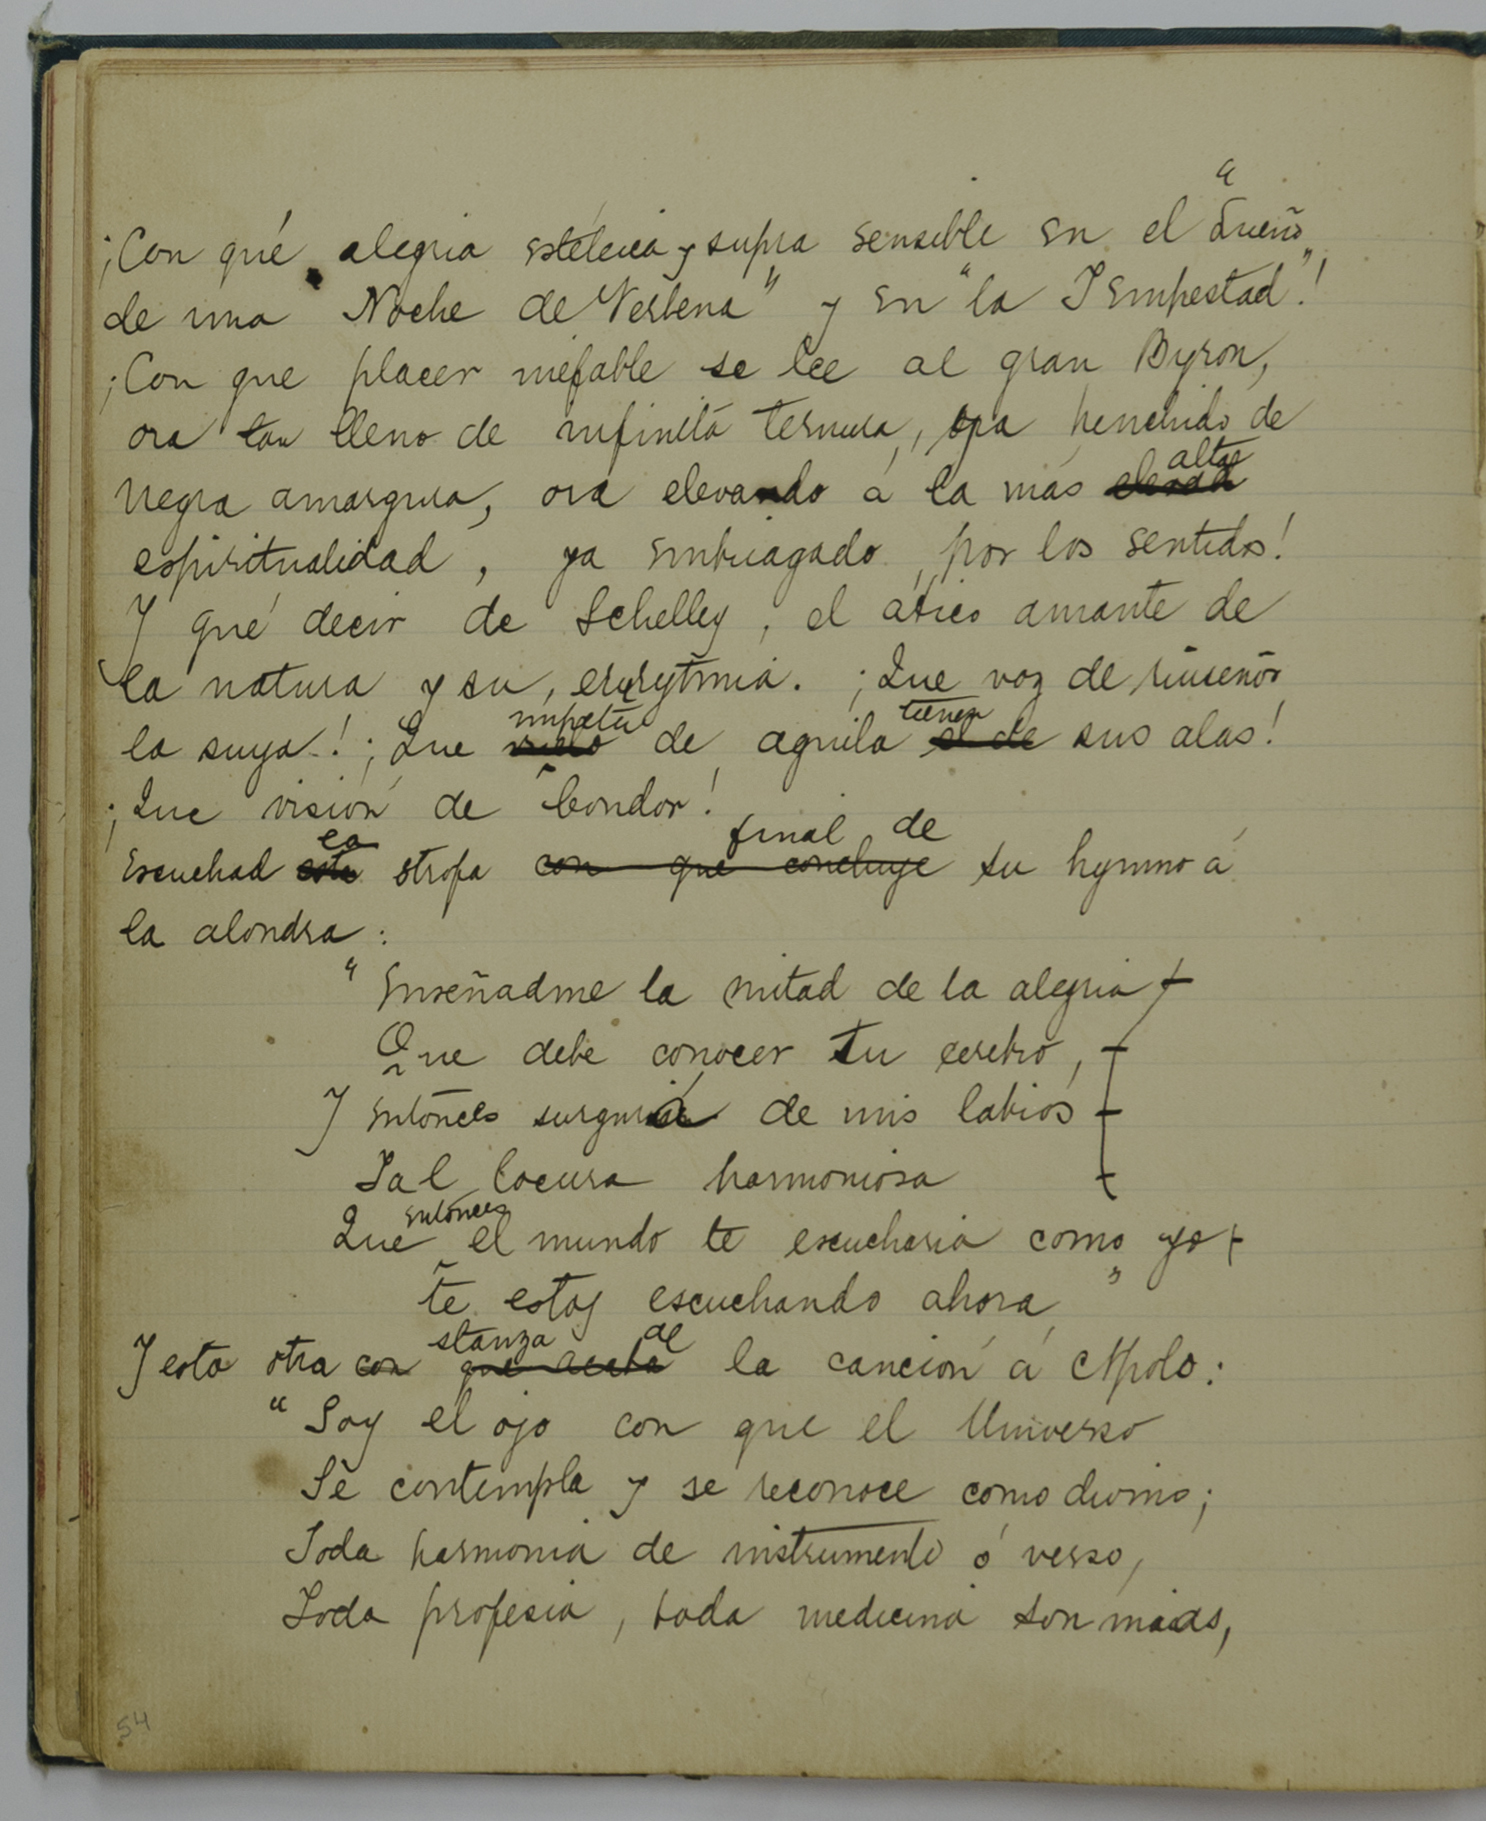 ¡Con qué alegria estética y supra sensible en el "Sueño
de una Noche de Verbena" y en "la Tempestad"!
¡Con que placer inefable se lee al gran Byron,
ora tan lleno de infinita ternura, ora henchido de
negra amargura, ora elevando á la más elevada alta
espiritualidad, ya embriagado por los sentidos!
Y qué decir de Schelley, el ático amante de
la natura y su eurytmia. ¡Que voz de ruiseñor
la suya! ¡Que vuelo impetu de aguila el de tienen sus alas!
¡Que visión de Condor!
Escuchad esta la strofa con que concluye final de su hymno á
la alondra:
"Enseñadme la mitad de la alegria
Que debe conocer tu cerebro,
Y entonces surgirá de mis labios
Tal locura harmoniosa
Que entonces el mundo te escucharia como yo
te estoy escuchando ahora"
Y esta otra con que acaba stanza de la canción á Apolo:
"Soy el ojo con que el Universo
Se contempla y se reconoce como divino;
Toda harmonia de instrumento ó verso,
Toda profesia, toda medicina son mias,
54